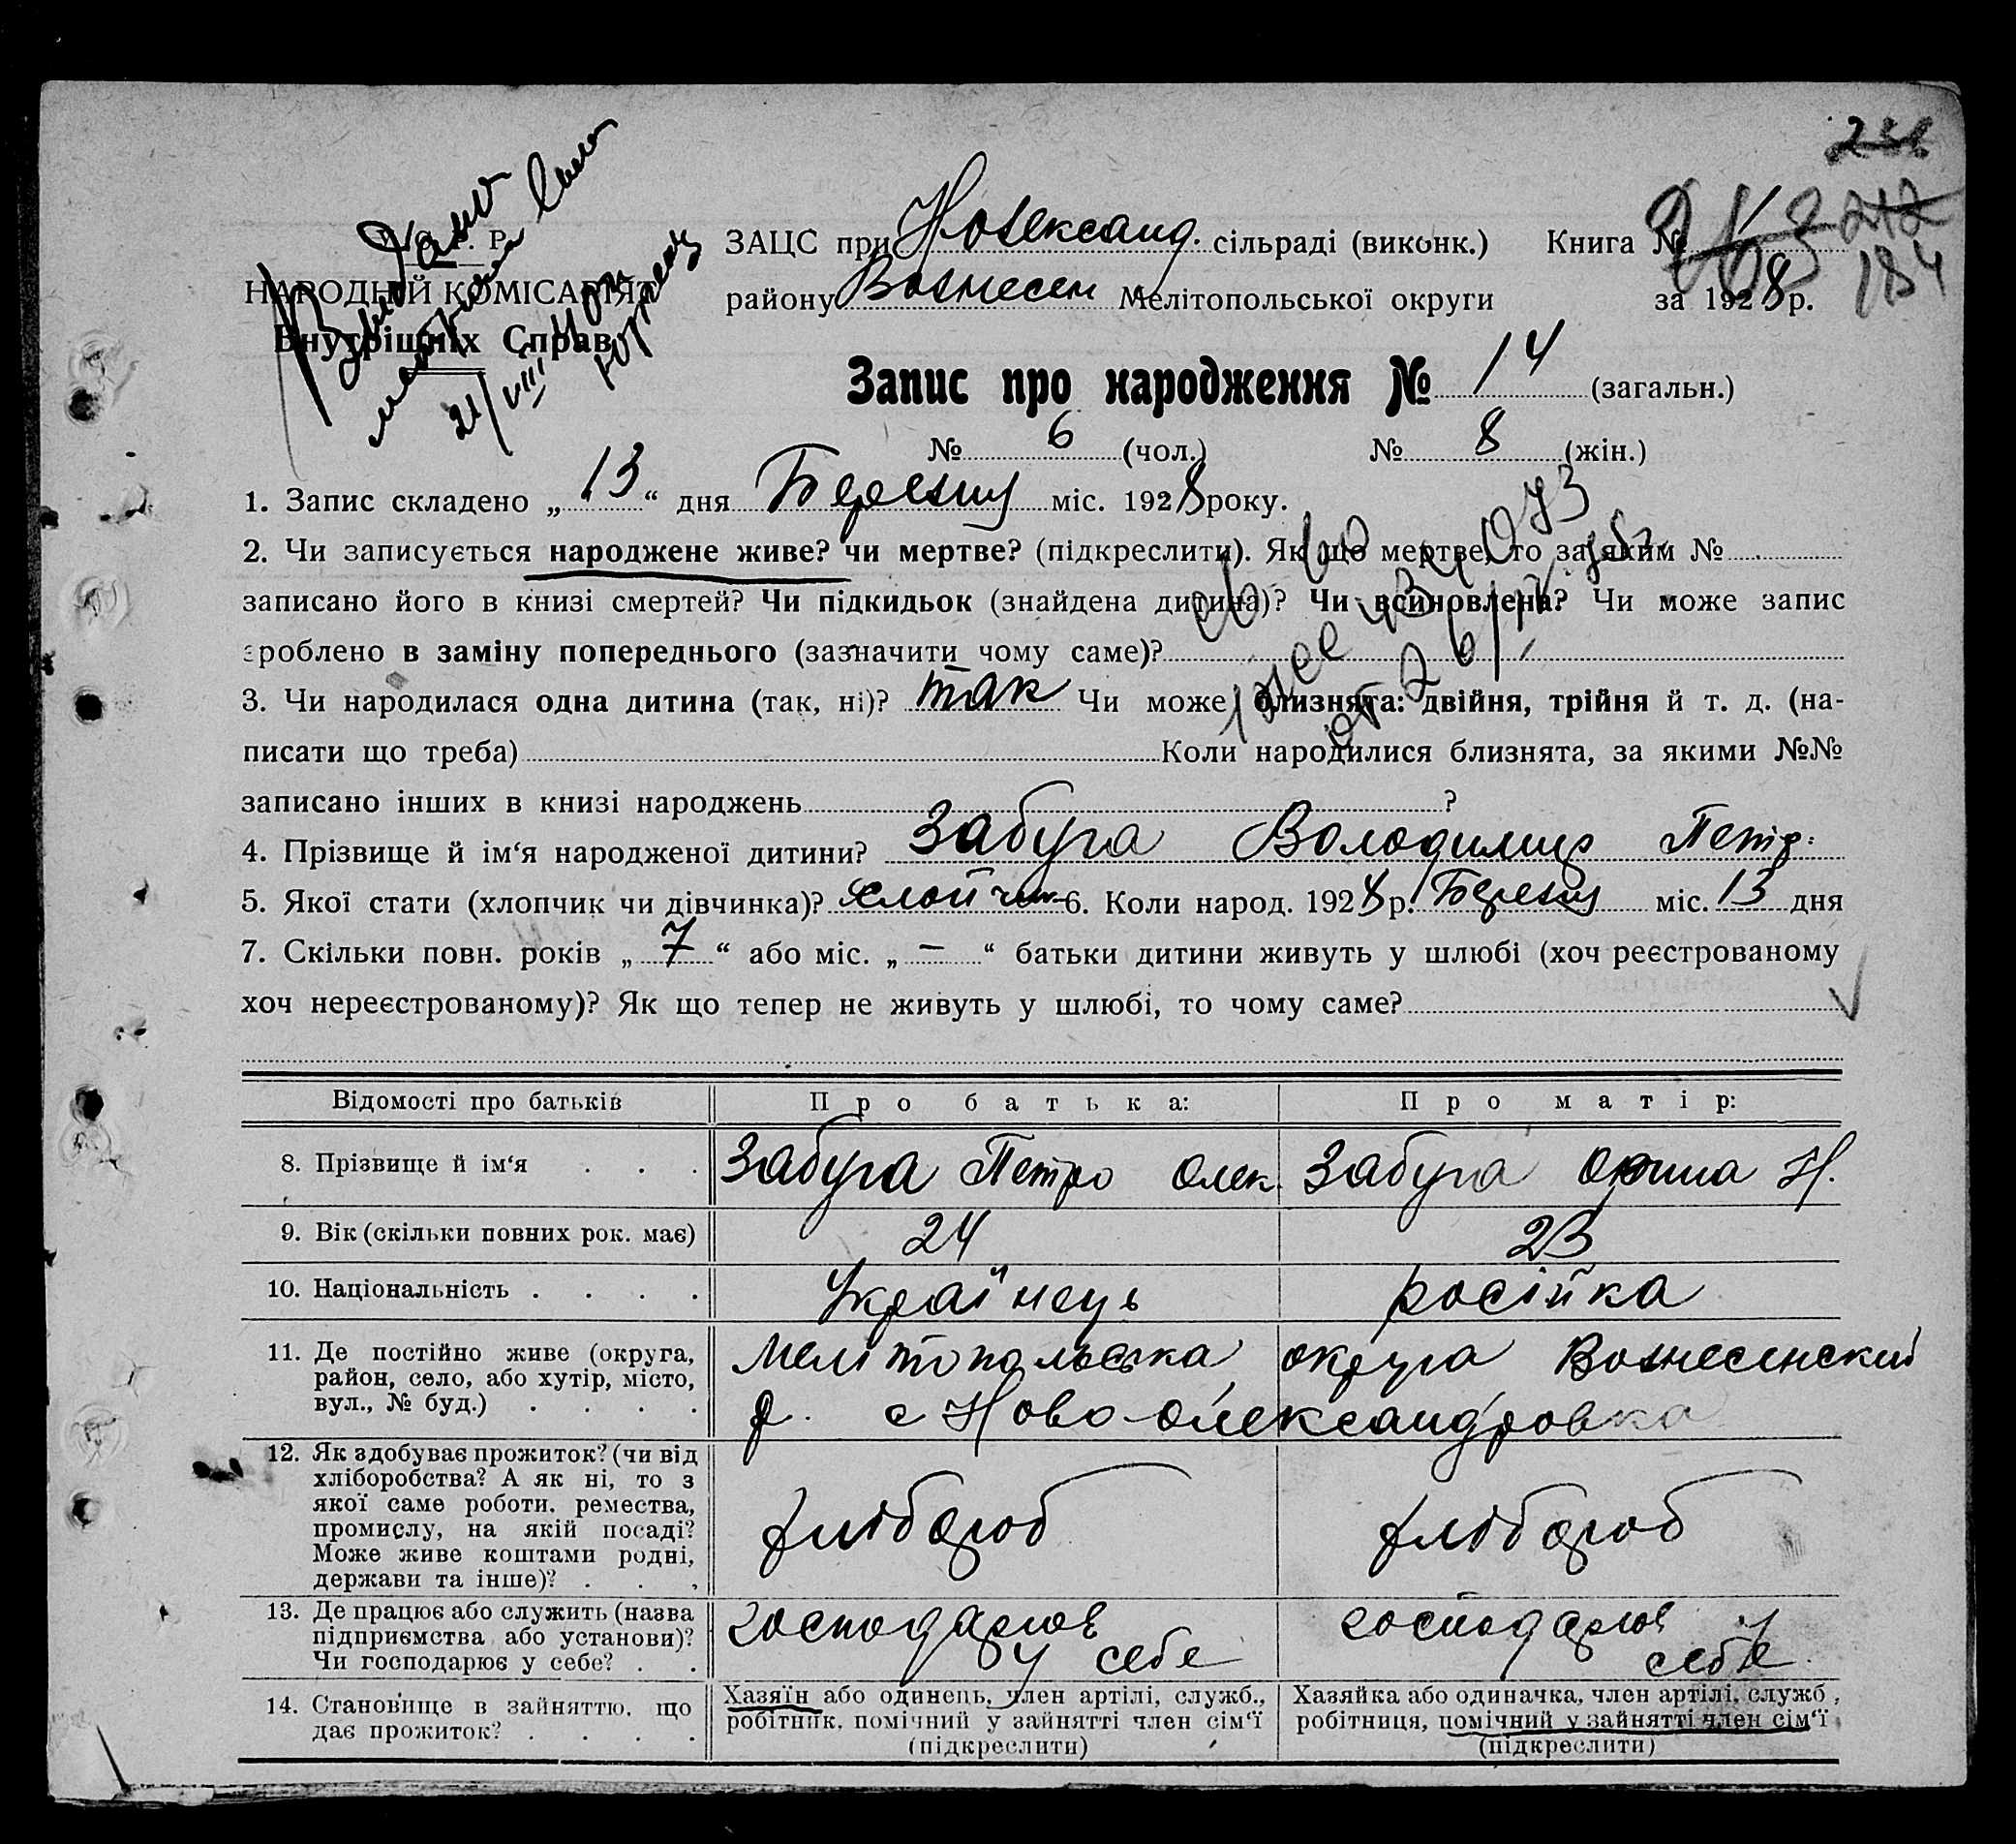 НАРОДНИЙ КОМІСАРІЯТ
Внутрішніх Справ
21/VIII
ЗАЦС при Новоександ. сільраді (виконк.) Книга №
району Вознесен Мелітопольської округи за 1928 р.
184
Запис про народження № 14 (загальн.)
№ 6 (чол.) № 8 (жін.)
1. Запис складено „ 13 “ дня Березня міс. 1928 року.
2. Чи записується народжене живе? чи мертве? (підкреслити). Як що мертве, то за яким №
записано його в книзі смертей? Чи підкидьок (знайдена дитина)? Чи всиновлена? Чи може запис
зроблено в заміну попереднього (зазначити чому саме)?
3. Чи народилася одна дитина (так, ні)? так Чи може близнята: двійня, трійня й т. д. (на-
писати що треба) Коли народилися близнята, за якими №№
записано інших в книзі народжень ?
4. Прізвище й ім‘я народженої дитини? Забуга Володимир Петр.
5. Якої стати (хлопчик чи дівчинка)? хлопчик 6. Коли народ. 1928 р. Березня міс. 13 дня
7. Скільки повн. років „ 7 “ або міс. „ – “ батьки дитини живуть у шлюбі (хоч реєстрованому
хоч нереєстрованому)? Як що тепер не живуть у шлюбі, то чому саме?
Відомості про батьків Про батька: Про матір:
8. Прізвище й ім‘я . . . Забуга Петро Олек. Забуга Орина Н.
9. Вік (скільки повних рок. має) 24 23
10. Національність . . . . Українець російка
11. Де постійно живе (округа,
район, село, або хутір, місто,
вул., № буд.) . . . .
Мелітопольська округа Вознесенский
р. с Ново-олександровка
12. Як здобуває прожиток? (чи від
хліборобства? А як ні, то з
якої саме роботи, ремества,
промислу, на якій посаді?
Може живе коштами родні,
держави та інше)? . . .
хлібороб хлібороб
13. Де працює або служить (назва
підприємства або установи)?
Чи господарює у себе? . .
господарює у себе господарює у себе
14. Становище в зайняттю, що
дає прожиток? . . . .
Хазяїн або одинець, член артілі, служб.,
робітник, помічний у зайнятті член сім‘ї
(підкреслити)
Хазяйка або одиначка, член артілі, служб.,
робітниця, помічний у зайнятті член сім‘ї
(підкреслити)